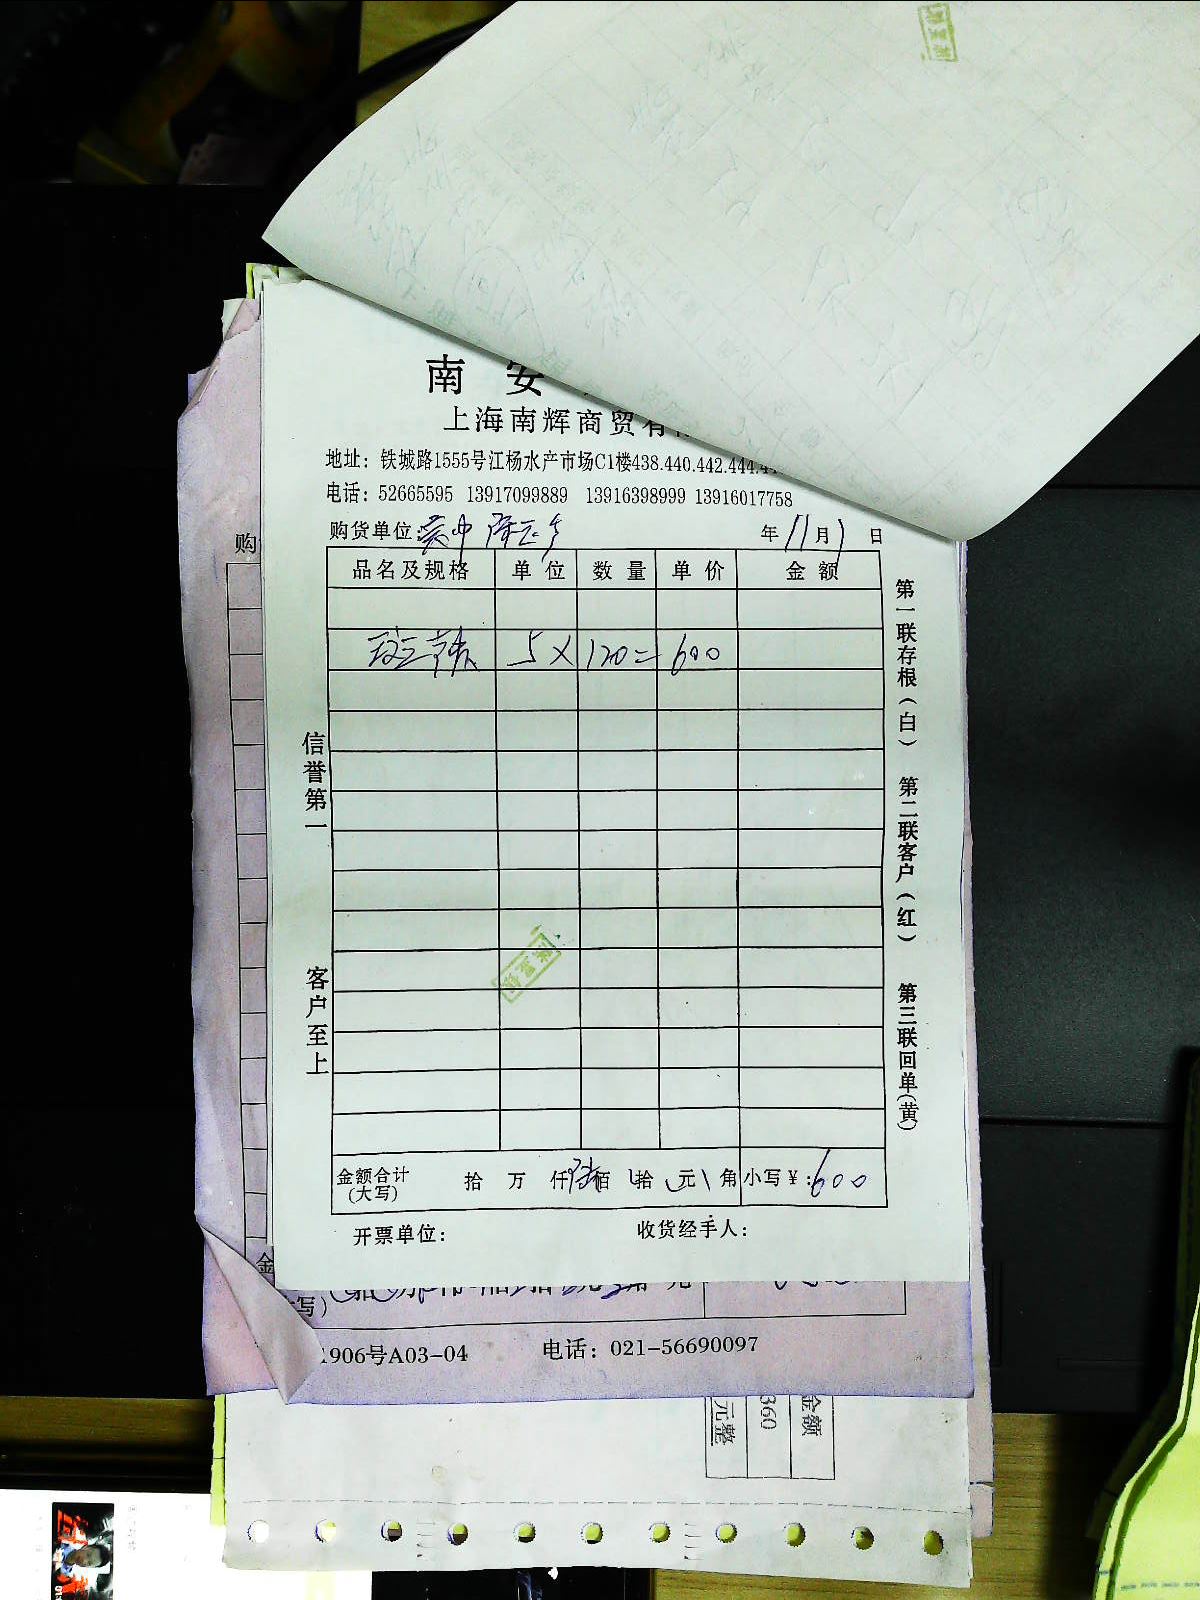 南 安
上海南辉商贸有
地址：铁城路1555号江杨水产市场C1楼438.440.442.444.4
电话：52665595 13917099889 13916398999 13916017758
购货单位： 年 11 月 1 日
品名及规格 单位 数量 单价 金额
5 × 120 = 600
信誉第一
客户至上
第一联存根（白） 第二联客户（红） 第三联回单（黄）
金额合计（大写） 拾 万 仟 陆 佰 拾 元 角 小写￥：600
开票单位： 收货经手人：
购
金
写）
1906号A03-04 电话：021-56690097
金额
360
元整